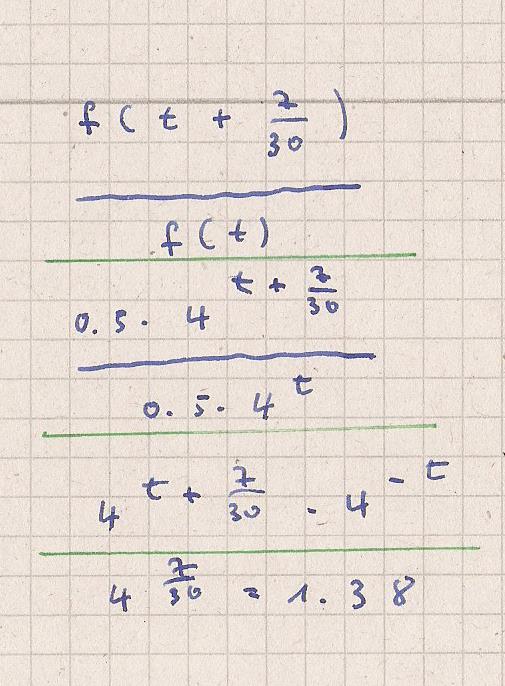 f ( t + 7/30 )
f ( t )
0.5 · 4^(t + 7/30)
0.5 · 4^t
4^(t + 7/30) · 4^(-t)
4^(7/30) = 1.38